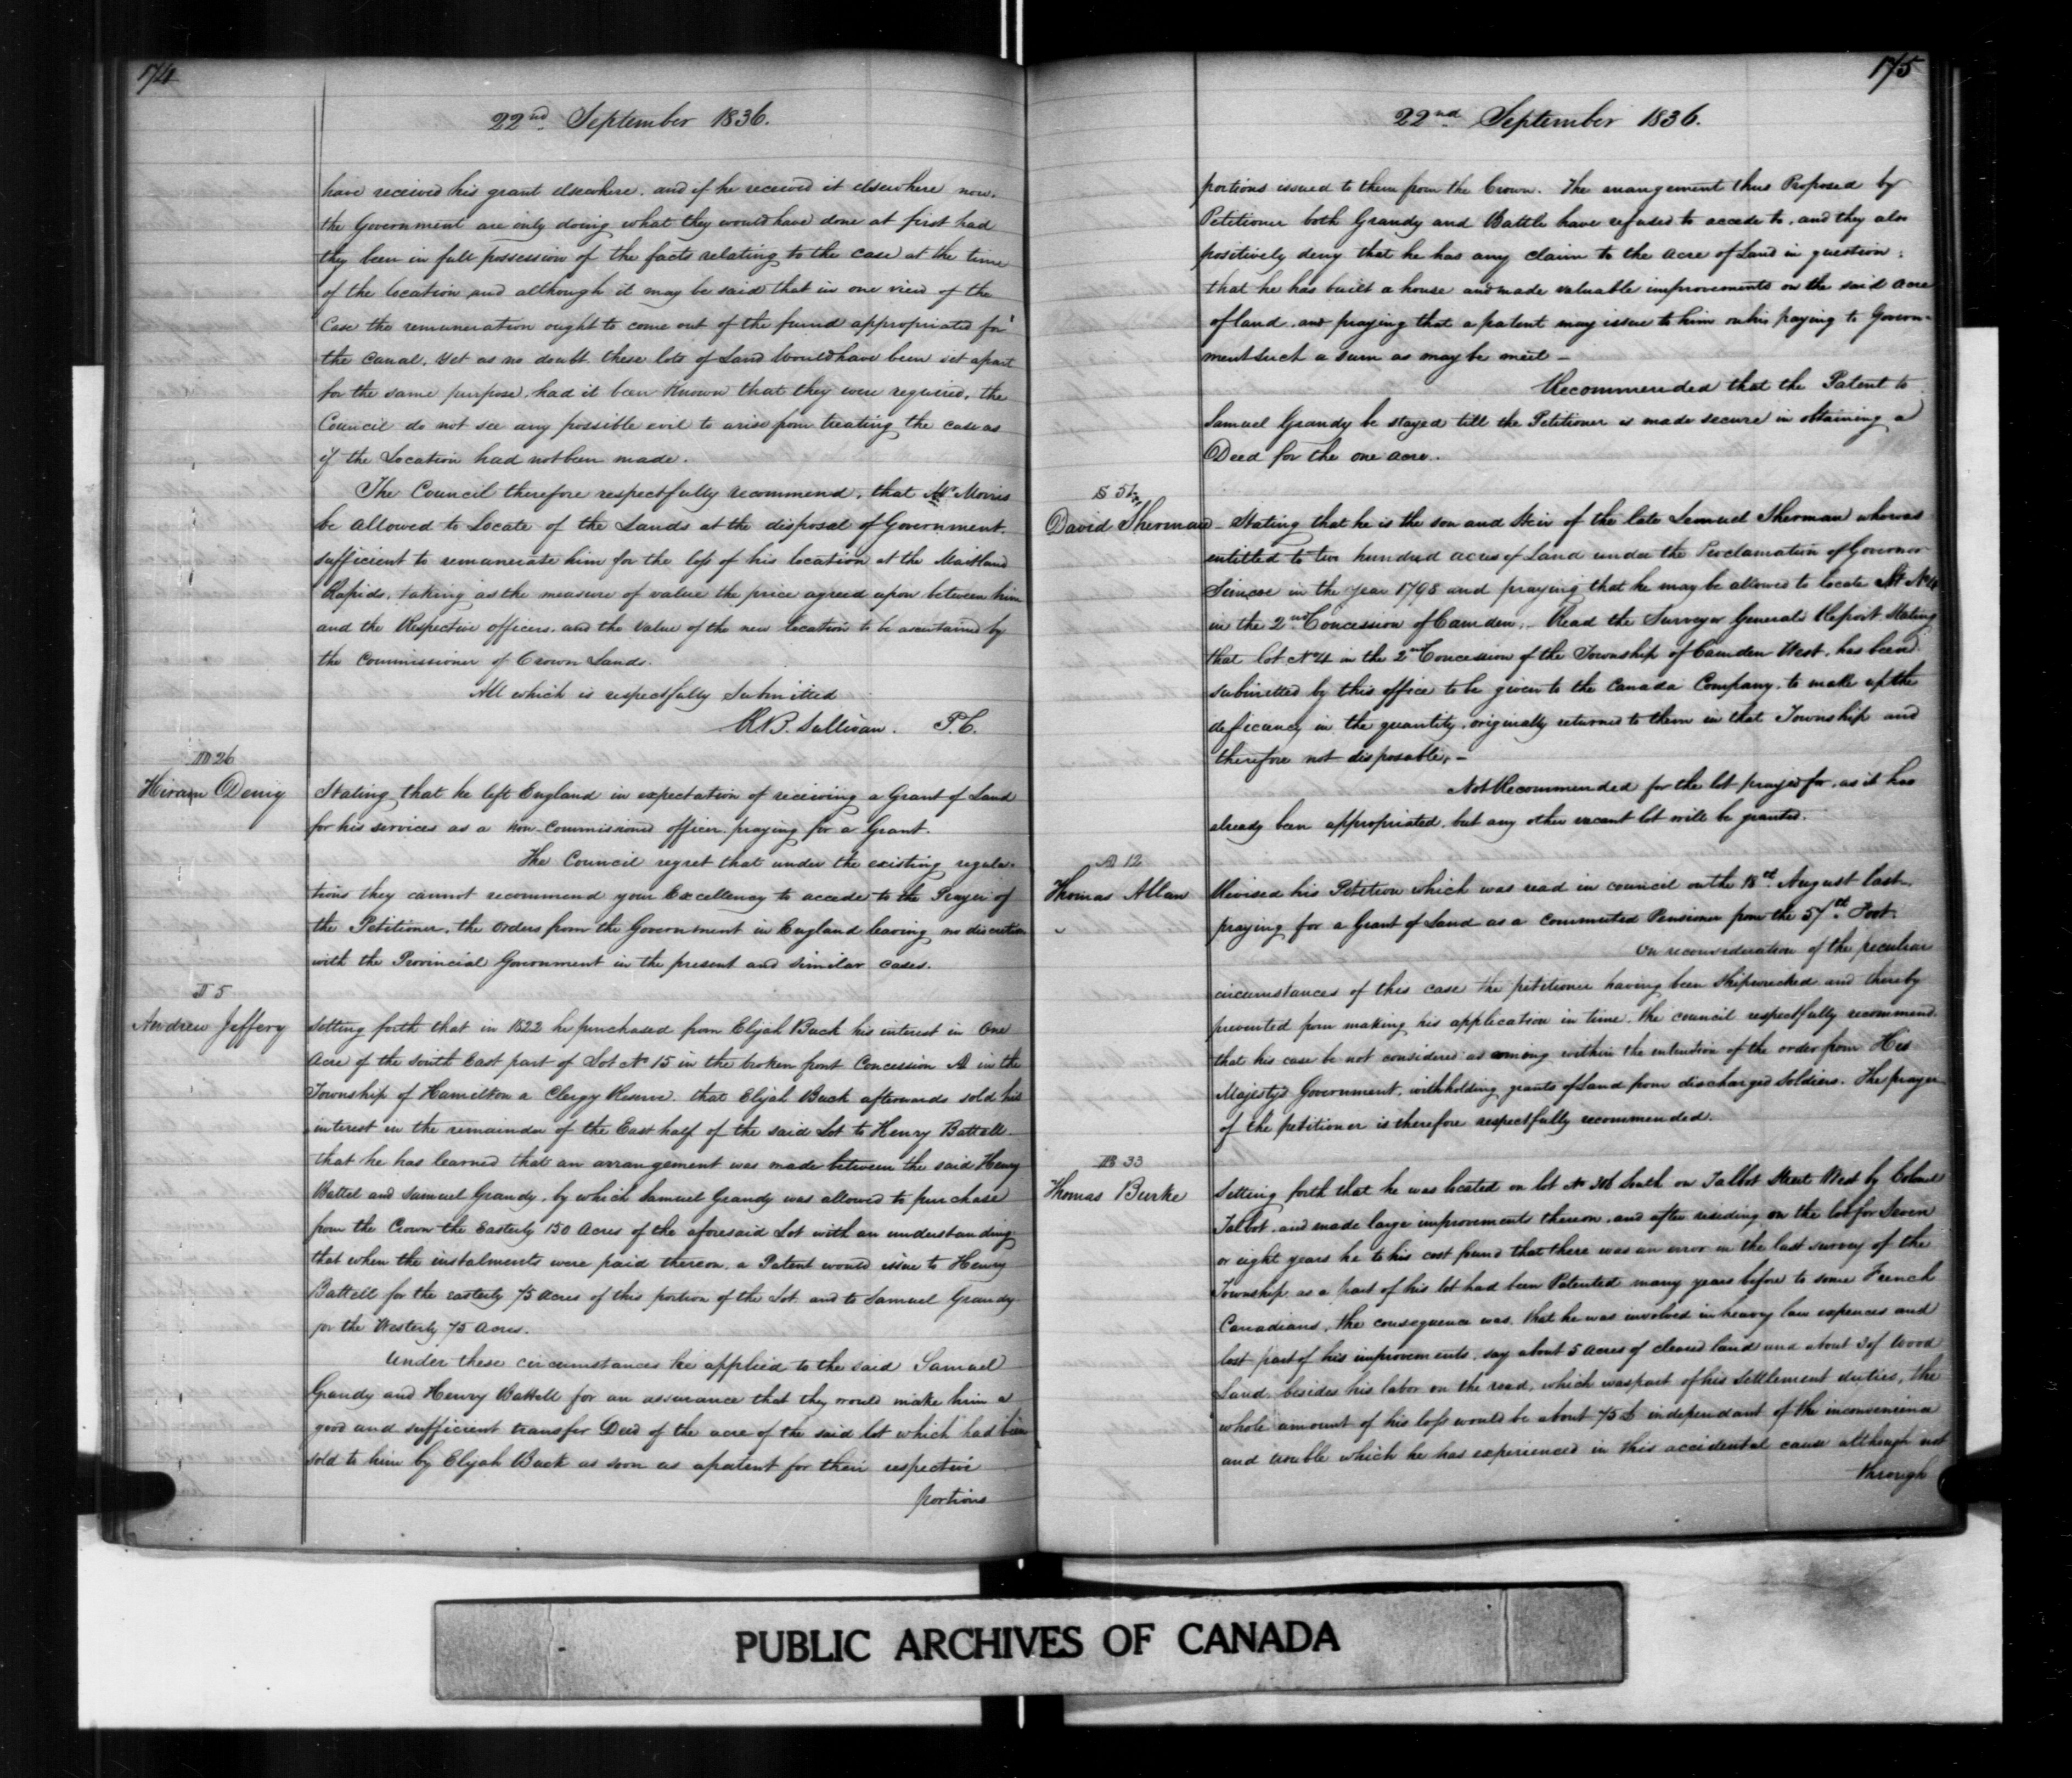 174
22nd September 1836.
have received his grant elsewhere. and if he received it elsewhere now.
the Government are only doing what they would have done at first had
they been in full possession of the facts relating to the case at the time
of the location and although it may be said that in one view of the
Case the remuneration ought to come out of the fund appropriated for
the canal. yet as no doubt these lots of Land would have been set apart
for the same purpose. had it been known that they were required, the
Council do not see any possible evil to arise from treating the case as
if the Location had not been made.
The Council therefore respectfully recommend, that Mr Morris
be allowed to Locate of the Lands at the disposal of Government.
sufficient to remunerate him for the loss of his location at the Maitland
Rapids, taking as the measure of value the price agreed upon between him
and the Respective officers. and the value of the new location to be ascertained by
the Commissioner of Crown Lands.
All which is respectfully submitted
R.B. Sullivan. P.C.
D 26
Hiram Deny
Stating that he left England in expectation of receiving a Grant of Land
for his services as a non-commisioned officer. praying for a Grant.
The Council regret that under the existing regula-
tions they cannot recommend your Excellency to accede to the Prayer of
the Petitioner, the orders from the Government in England leaving no discretion
with the Provincial Government in the present and similar cases.
I 5
Andrew Jeffery
Setting forth that in 1822 he purchased from Elijah Buck his interest in One
acre of the South East part of Lot No 15 in the broken front Concession A in the
Township of Hamilton a Clergy Reserve. that Elijah Buck afterwards sold his
interest in the remainder of the East half of the said Lot to Henry Battell
that he has learned that an arrangement was made between the said Henry
Battel and Samuel Grandy. by which Samuel Grandy was allowed to purchase
from the Crown the Easterly 150 Acres of the aforesaid Lot with an understanding
that when the instalments were paid thereon. a Patent would issue to Henry
Battell for the easterly 75 acres of this portion of the Lot. and to Samuel Grandy
for the Westerly 75 Acres.
Under these circumstances he applied to the said Samuel
Grandy and Henry Battell for an assurance that they would make him a
good and sufficient transfer Deed of the acre of the said lot which had been
sold to him by Elijah Buck as soon as a patent for their respective
portions
175
22nd September 1836.
portions issued to them from the Crown. The arrangement thus Proposed by
Petitioner both Grandy and Battle have refused to accede to. and they also
positively deny that he has any claim to the acre of Land in question:
that he has built a house and made valuable improvements on the said acre
of land. and praying that a patent may issue to him on his paying to Govern-
ment such a sum as may be meet –
Recommended that the Patent to
Samuel Grandy be stayed till the Petitioner is made secure in obtaining a
Deed for the one acre.
S 51
David Sherman
Stating that he is the son and Heir of the late Lemuel Sherman who was
entitled to two hundred acres of Land under the Proclamation of Governor
Simcoe in the year 1798 and praying that he may be allowed to locate Lot No 4
in the 2nd Concession of Camden. Read the Surveyor Generals Report Stating
that lot No 4 in the 2nd Concession of the Township of Camden West. has been
submitted by this office to be given to the Canada Company. to make up the
deficiency in the quantity. originally returned to them in that Township and
therefore not disposable. –
Not Recommended for the lot prayed for. as it has
already been appropriated. but any other vacant lot will be granted.
A 12
Thomas Allan
Revised his Petition which was read in council on the 18th August last.
praying for a Grant of Land as a Commuted Pensioner from the 57th Foot.
On reconsideration of the peculiar
circumstances of this case the petitioner having been Shipwrecked and thereby
prevented from making his application in time. the council respectfully recommend
that his case be not considered as coming within the intention of the order from His
Majestys Government, withholding grants of Land from discharged Soldiers. The prayer
of the petitioner is therefore respectfully recommended.
B 33
Thomas Burke
Setting forth that he was located on lot No South on Talbot Street West by Colonel
Talbot. and made large improvements thereon. and after residing on the lot for Seven
or eight years he to his cost found that there was an error in the last survey of the
Township as a part of his lot had been Patented many years before to some French
Canadians, the consequence was. that he was involved in heavy law expences and
lost part of his improvements. say about 5 acres of cleared land and about 3 of wood
Land. besides his labor on the road. which was part of his Settlement duties, the
whole amount of his loss would be about 75£ independant of the inconvenience
and trouble which he has experienced in this accidental cause although not
through
PUBLIC ARCHIVES OF CANADA